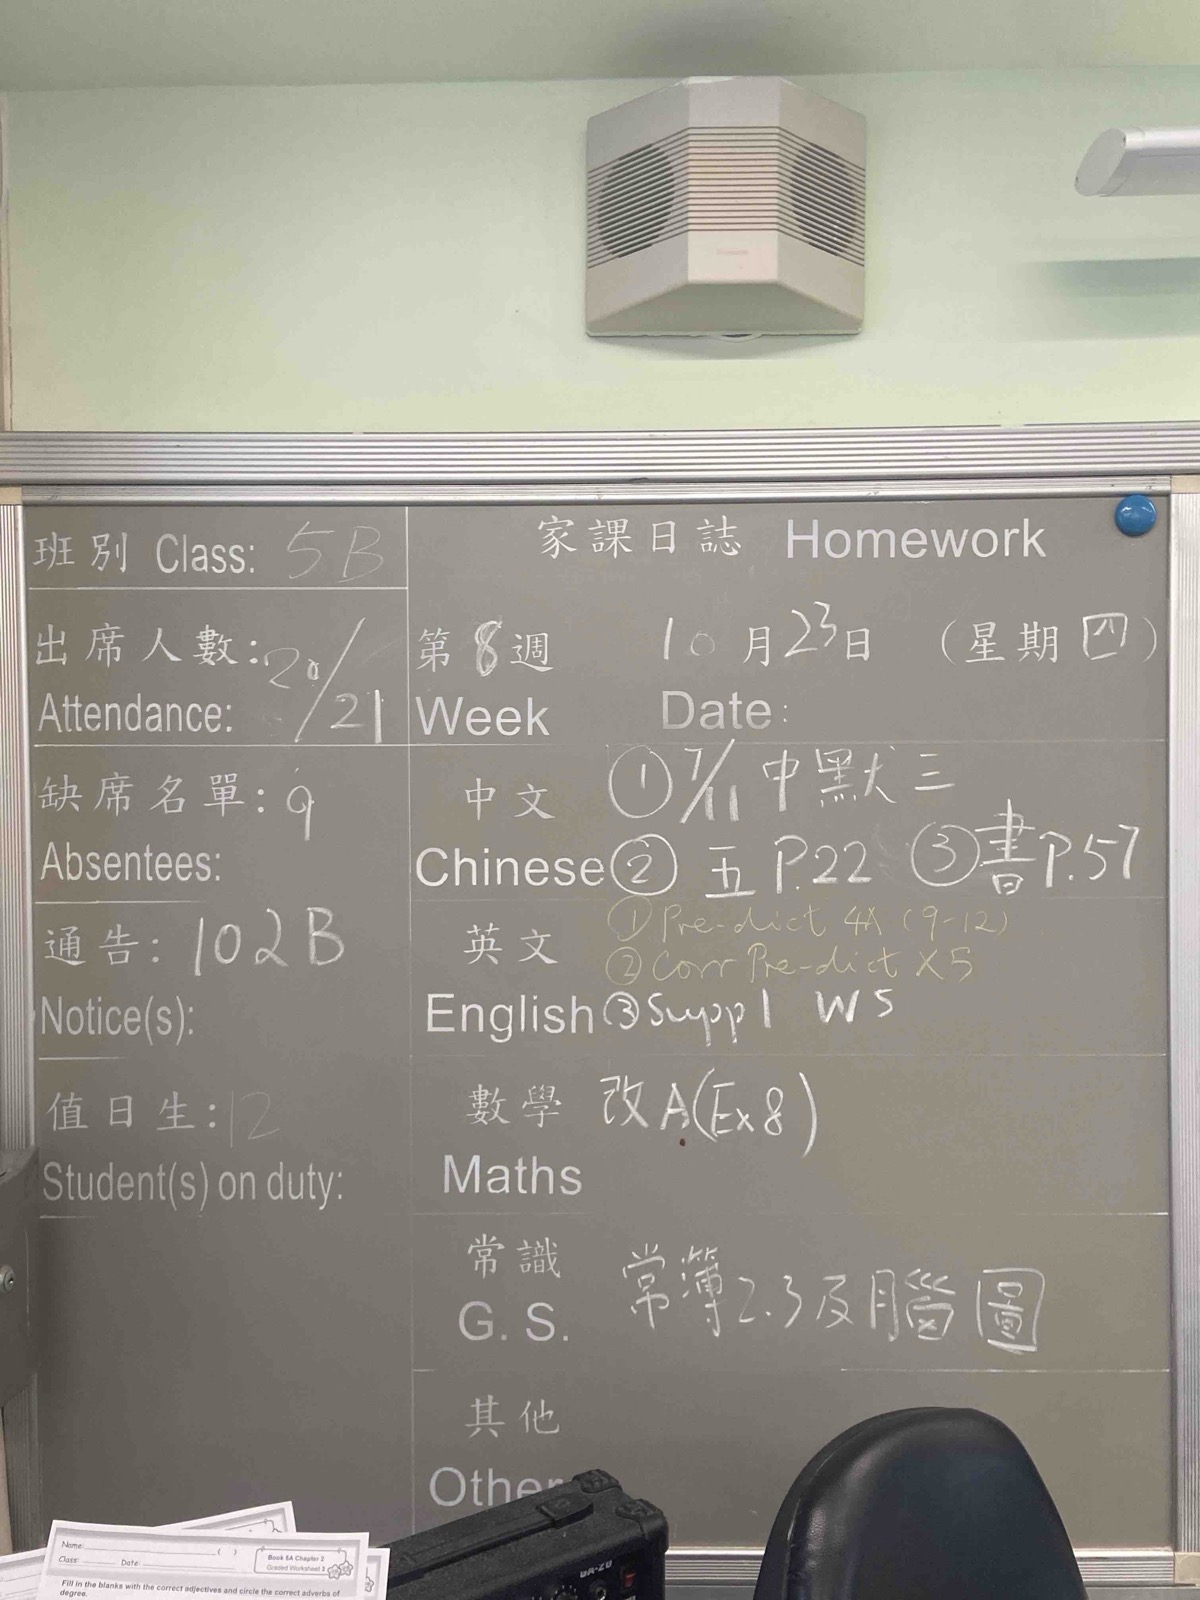 班別 Class: 5B
出席人數: 20/21
Attendance:
缺席名單: 9
Absentees:
通告: 102B
Notice(s):
值日生: 12
Student(s) on duty:
家課日誌 Homework
第8週 10月23日 (星期四)
Week Date:
中文 ① 7/11 中默三
Chinese ② 五 P.22 ③ 書 P.57
英文 ① Pre-dict 4A (9-12)
② Corr Pre-dict X5
English ③ Suppl WS
數學 改A(Ex8)
Maths
常識 常簿2.3及腦圖
G. S.
其他
Other
Name: ( )
Class: Date:
Book 5A Chapter 2
Graded Worksheet
Fill in the blanks with the correct adjectives and circle the correct adverbs of
degree.